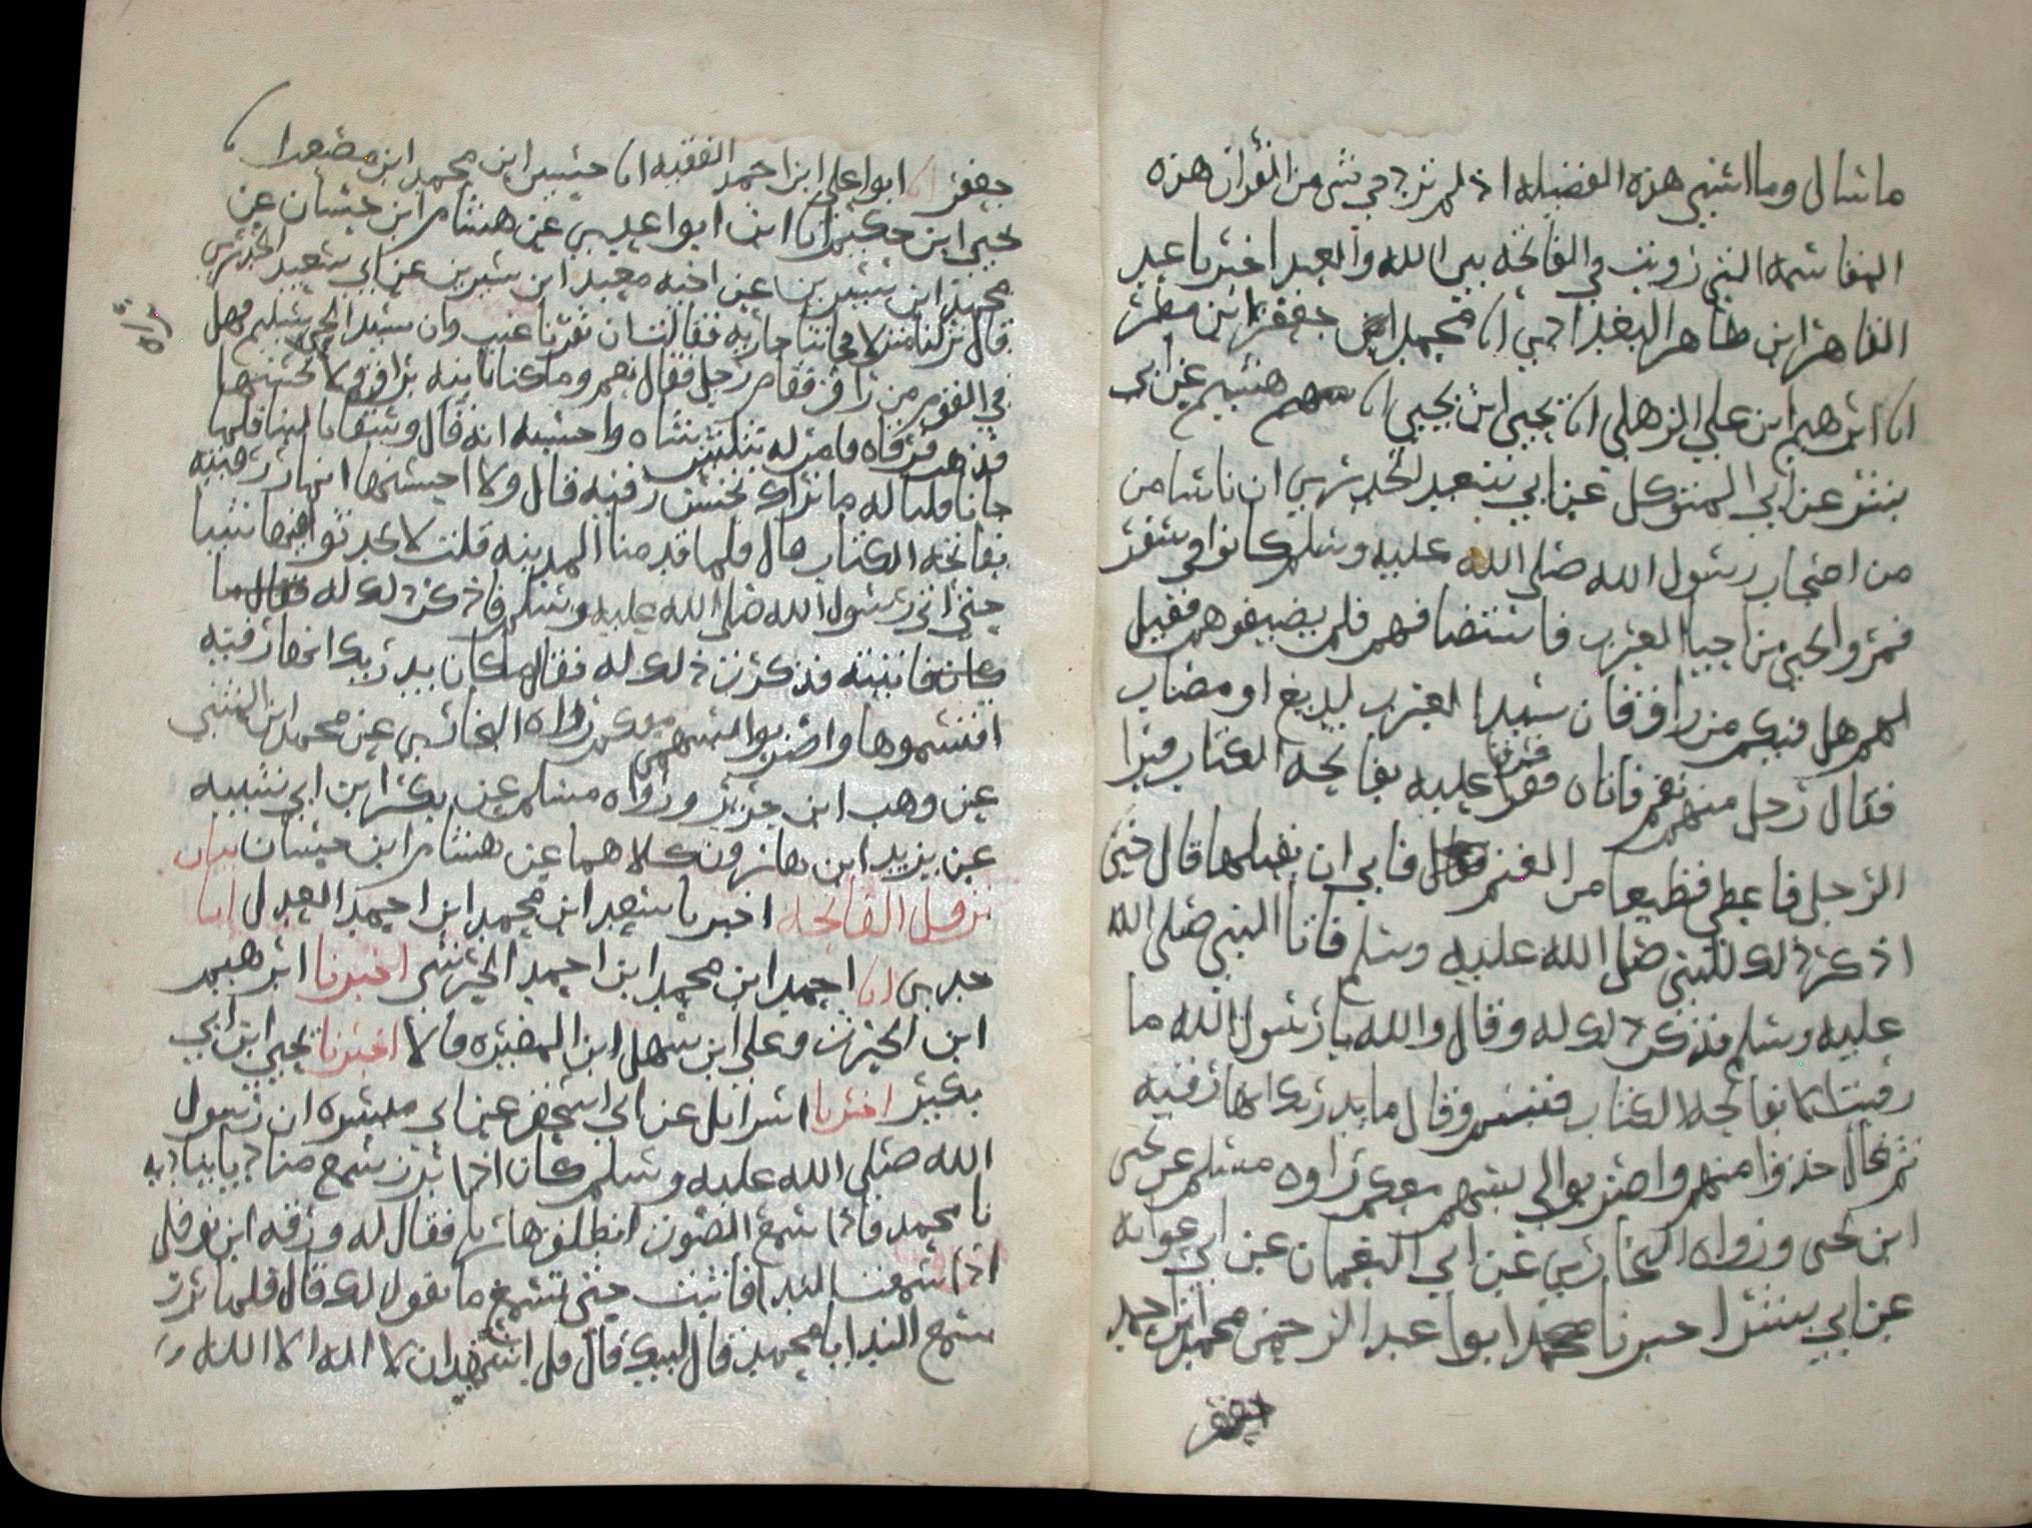 ما سال وما اشبهي هذه الفضيله اذ لم نزد في شي من القران هذه
المقاسمه التي رويت في الفاتحه بين الله والعبد اخبرنا عبد
القاهر ابن طاهر البغدادي انا محمد ابن جعفر ابن مطر
انا ابرهيم ابن علي الذهلي انا يحيى ابن يحيى انا هشيم عن ابي
بشر عن ابي المتوكل عن ابي سعيد الخدري ان ناسا من
من اصحاب رسول الله صلى الله عليه وسلم كانوا في سفر
فمروا الحي من احيا العرب فاستضافهم فلم يضيفوهم فقيل
لهم هل فيكم من راق فان سيد العرب لديغ او مصاب
فقال رجل منهم نعم فاتاه فقرا عليه بفاتحه الكتاب فبرا
الرجل فاعطي قطيعا من الغنم فابى ان يقبلها قال حتى
اذكر ذلك للنبي صلى الله عليه وسلم فاتا النبي صلى الله
عليه وسلم فذكر ذلك له وقال والله يا رسول الله ما
رقيت الا بفاتحه الكتاب فتبسم وقال ما يدريك انها رقيه
ثم قال خذوا منهم واضربوا لي بسهم معكم رواه مسلم عن يحيى
ابن يحيى ورواه البخاري عن ابي النعمان عن ابي عوانه
عن ابي بشر اخبرنا ابوا عبد الرحمن محمد ابن احمد
جعفر
جعفر انا ابوا علي ابن احمد الفقيه انا حسين ابن محمد ابن مصعب
يحيى ابن حكيم انا ابن ابوا عدي عن هشام ابن حسان عن
محمد ابن سيرين عن اخيه معبد ابن سيرين عن ابي سعيد الخدري
قال نزلنا منزلا فجاتنا جاريه فقالت ان نفرنا غيب وان سيد الحي سليم فهل
في القوم من راق فقام رجل فقال نعم وما كنا نابنه براق ولا يحسنها
فذهب فرقاه فامر له بثلثين شاه واحسبه انه قال وسقانا لبنا فلما
جانا قلنا له ما نراك تحسن رقيه قال ولا احسنها انما رقيته
بفاتحه الكتاب قال فلما قدمنا المدينه قلت لا تحدثوا فيها شيا
حتى اتي رسول الله صلى الله عليه وسلم فاذكر ذلك له فقال ما
كان فاتيته فذكرت ذلك له فقال ما كان يدريك انها رقيه
اقتسموها واضربوا بسهمي معكم رواه البخاري عن محمد ابن المثنى
عن وهب ابن جرير ورواه مسلم عن بكر ابن ابي شيبه
عن يزيد ابن هارون كلاهما عن هشام ابن حسان بيان
نزول الفاتحه اخبرنا سعيد ابن محمد ابن احمد العدل انا
جدي انا احمد ابن محمد ابن احمد الحرشي اخبرنا ابرهيم
ابن الحرث وعلي ابن سهل ابن المغيره قالا اخبرنا يحيى ابن ابي
بكير اخبرنا اسرائل عن ابي اسحق عن ابي ميسره ان رسول
الله صلى الله عليه وسلم كان اذا برز سمع مناديا يناديه
يا محمد فاذا سمع الصوت انطلق هاربا فقال له ورقه ابن نوفل
اذا سمعت الندا فاثبت حتى تسمع ما يقول لك قال فلما برز
سمع الندا يا محمد قال لبيك قال قل اشهد ان لا اله الا الله و